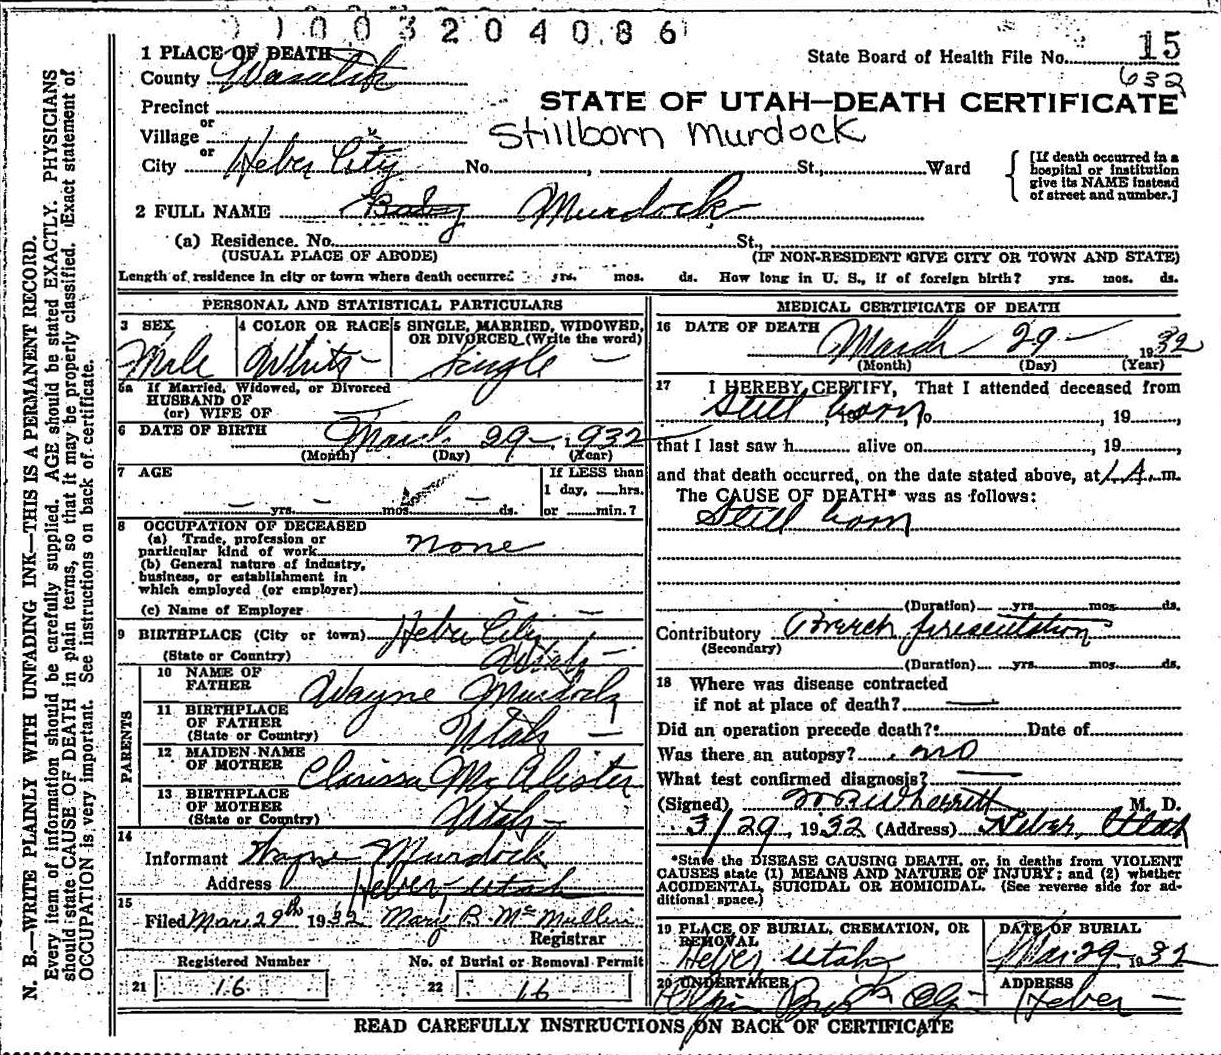 11003204086
1 PLACE OF DEATH
State Board of Health File No. 15
County Wasatch
632
STATE OF UTAH—DEATH CERTIFICATE
Precinct
or
Village
Stillborn Murdock
City or Heber City No. , St., Ward
[If death occurred in a hospital or institution give its NAME instead of street and number.]
2 FULL NAME Baby Murdock
(a) Residence. No. St.,
(USUAL PLACE OF ABODE) (IF NON-RESIDENT GIVE CITY OR TOWN AND STATE)
Length of residence in city or town where death occurred yrs. mos. ds. How long in U. S., if of foreign birth? yrs. mos. ds.
PERSONAL AND STATISTICAL PARTICULARS
3 SEX 4 COLOR OR RACE 5 SINGLE, MARRIED, WIDOWED,
OR DIVORCED (Write the word)
Male White Single
5a If Married, Widowed, or Divorced
HUSBAND OF
(or) WIFE OF
6 DATE OF BIRTH March 29 1932
(Month) (Day) (Year)
7 AGE If LESS than
1 day, hrs.
yrs. mos. ds. or min.?
8 OCCUPATION OF DECEASED
(a) Trade, profession or
particular kind of work none
(b) General nature of industry,
business, or establishment in
which employed (or employer)
(c) Name of Employer
9 BIRTHPLACE (City or town) Heber City
(State or Country) Utah
PARENTS
10 NAME OF
FATHER Wayne Murdock
11 BIRTHPLACE
OF FATHER
(State or Country) Utah
12 MAIDEN NAME
OF MOTHER Clarissa McAlister
13 BIRTHPLACE
OF MOTHER
(State or Country) Utah
14
Informant Wayne Murdock
Address Heber Utah
15
Filed Mar. 29th 1932 Mary B McMullin
Registrar
Registered Number No. of Burial or Removal Permit
21 16 22 16
MEDICAL CERTIFICATE OF DEATH
16 DATE OF DEATH March 29 1932
(Month) (Day) (Year)
17 I HEREBY CERTIFY, That I attended deceased from
Still born , 19 to , 19
that I last saw h alive on , 19
and that death occurred, on the date stated above, at 1 A. m.
The CAUSE OF DEATH* was as follows:
Still born
(Duration) yrs. mos. ds.
Contributory Breech presentation
(Secondary)
(Duration) yrs. mos. ds.
18 Where was disease contracted
if not at place of death?
Did an operation precede death? Date of
Was there an autopsy? no
What test confirmed diagnosis?
(Signed) Wherritt M. D.
3/29, 1932 (Address) Heber, Utah
*State the DISEASE CAUSING DEATH, or, in deaths from VIOLENT
CAUSES state (1) MEANS AND NATURE OF INJURY; and (2) whether
ACCIDENTAL, SUICIDAL OR HOMICIDAL. (See reverse side for additional space.)
19 PLACE OF BURIAL, CREMATION, OR
REMOVAL DATE OF BURIAL
Heber, Utah Mar. 29 1932
20 UNDERTAKER ADDRESS
Heber
READ CAREFULLY INSTRUCTIONS ON BACK OF CERTIFICATE
N. B.—WRITE PLAINLY WITH UNFADING INK—THIS IS A PERMANENT RECORD.
Every item of information should be carefully supplied. AGE should be stated EXACTLY. PHYSICIANS
should state CAUSE OF DEATH in plain terms, so that it may be properly classified. Exact statement of
OCCUPATION is very important. See instructions on back of certificate.